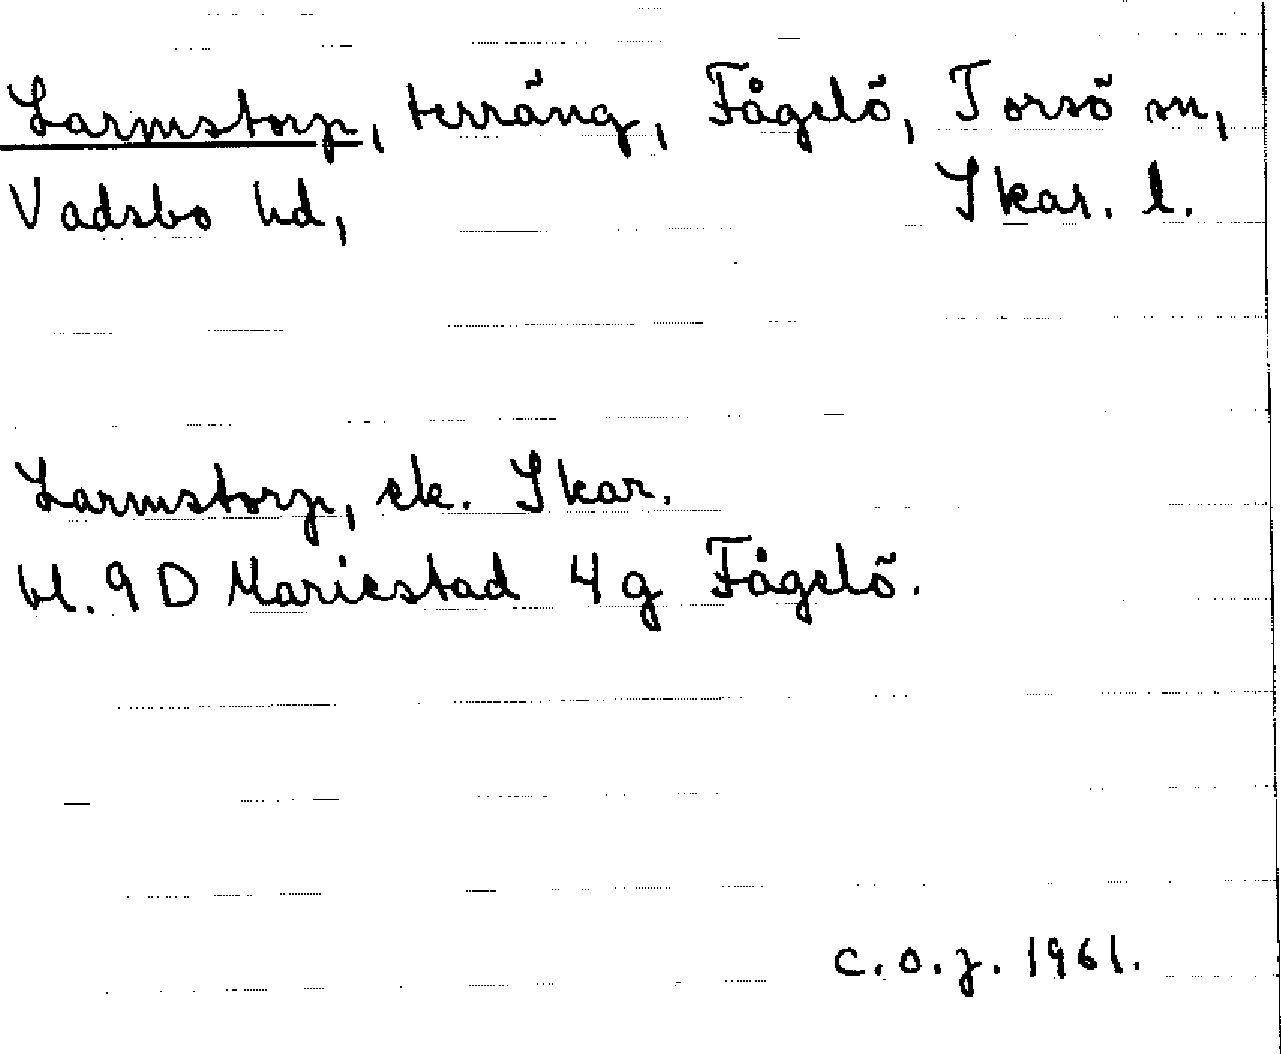 Larmstorp, terräng, Fågelö, Torsö sn,
Vadsbo hd, Skar. l.
Larmstorp, ek. Skar.
bl. 9 D Mariestad 4 g Fågelö.
C.O.J. 1961.